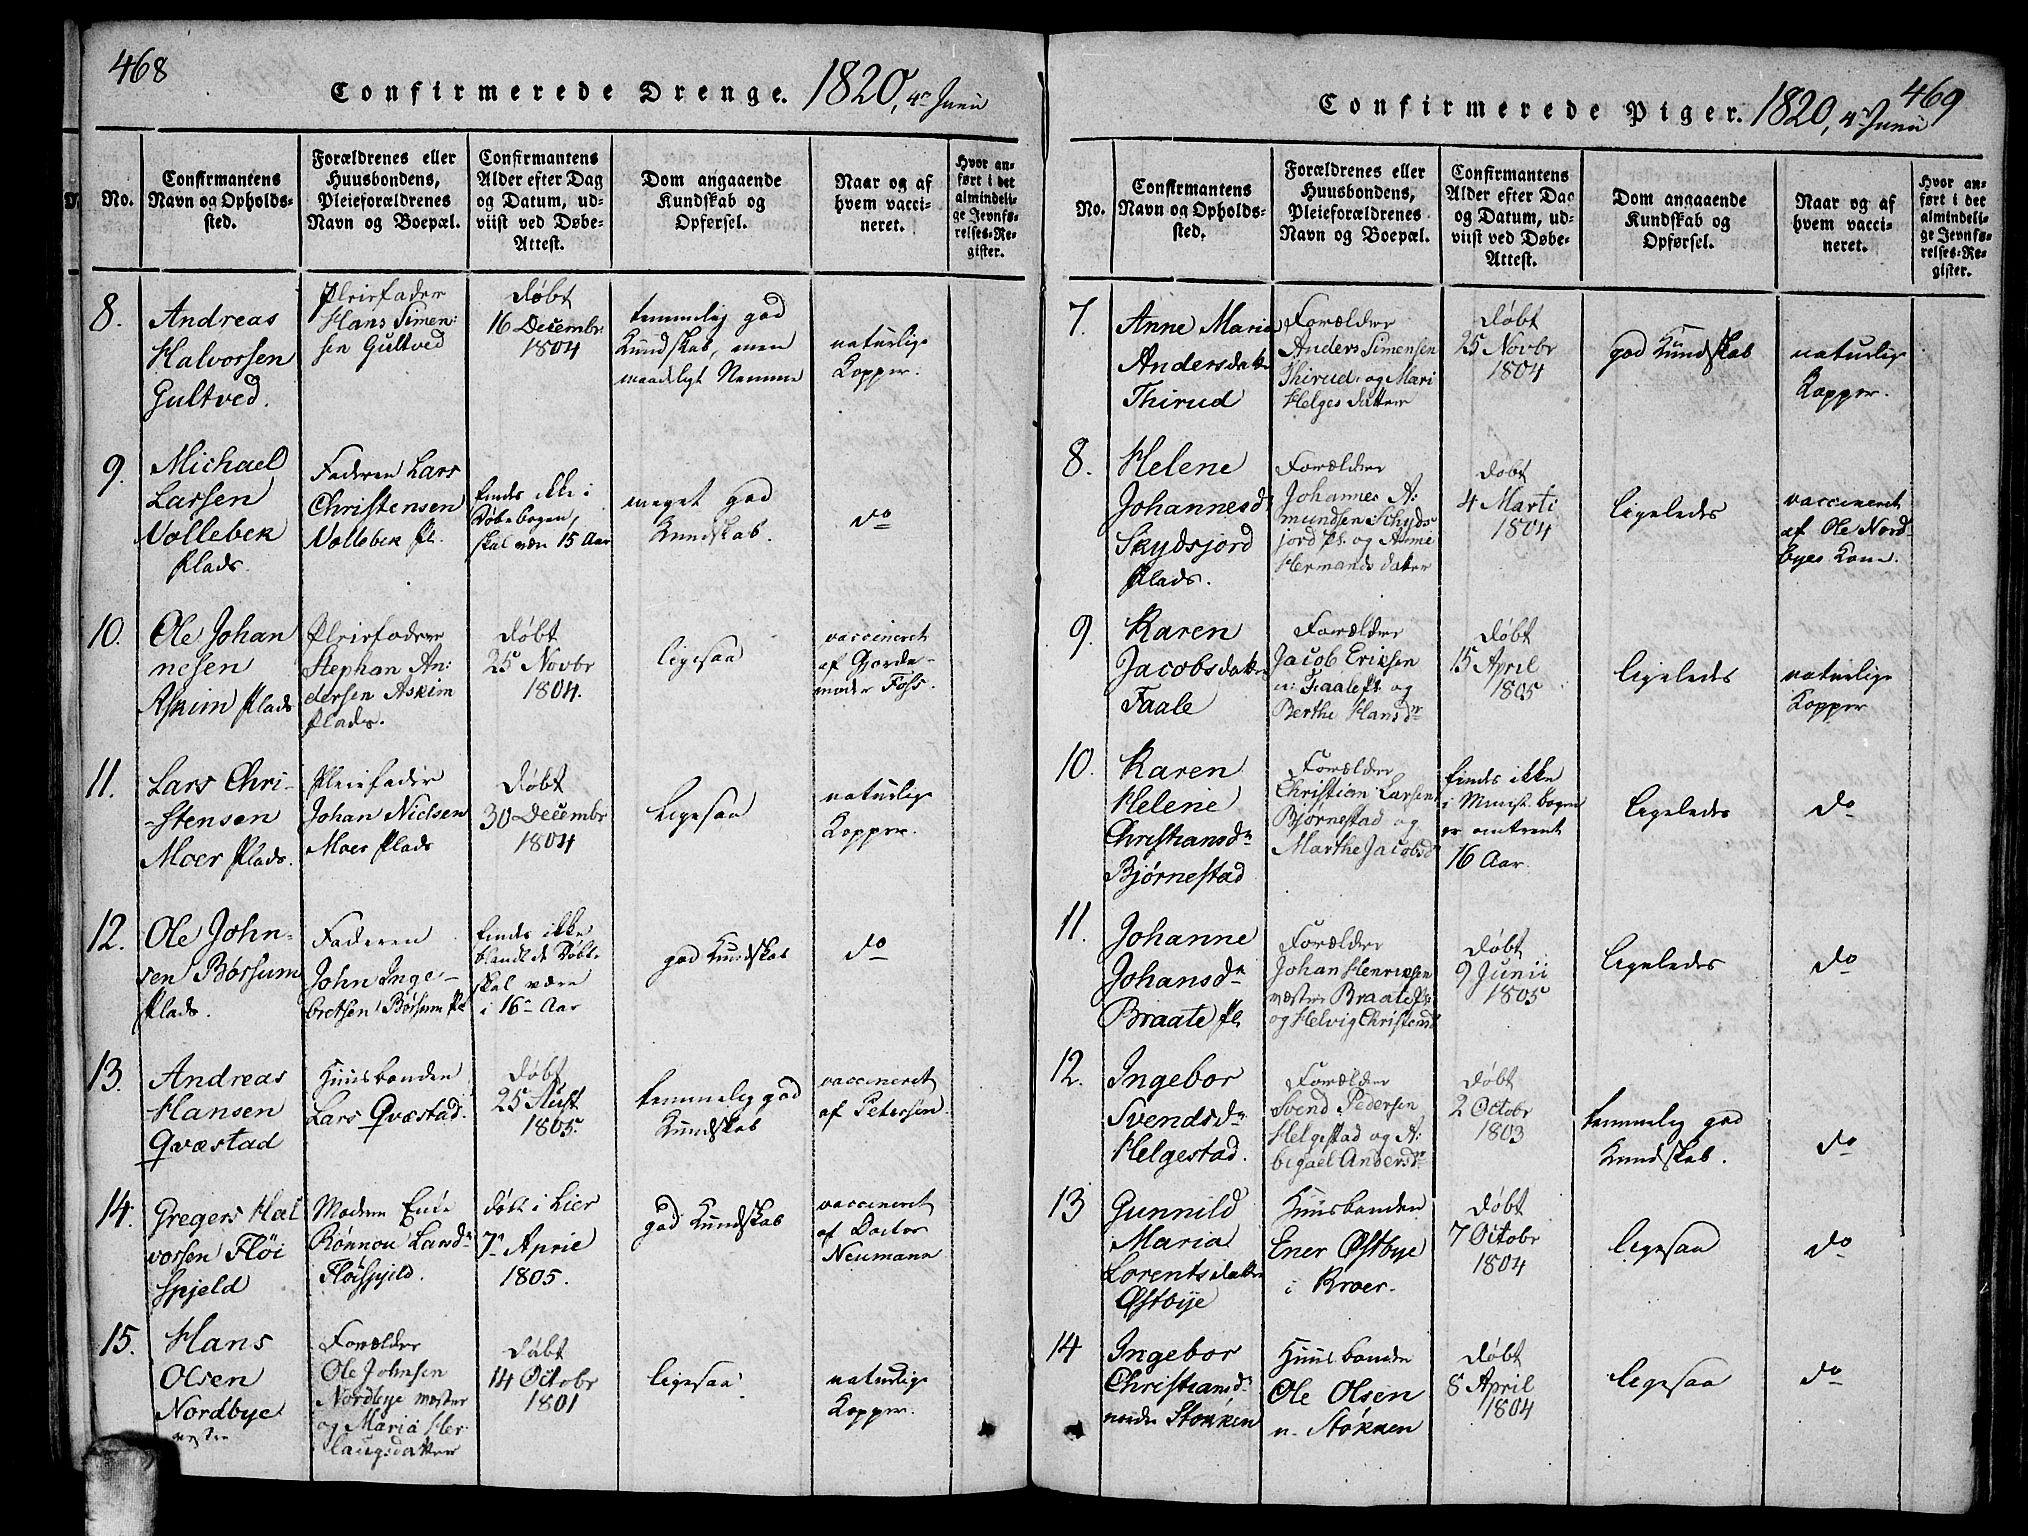 468
Confirmerede Drenge. 1820, 4de Junii
No.
Confirmantens
Navn og Opholds-
sted.
Forældrenes eller
Huusbondens,
Pleieforældrenes
Navn og Boepæl.
Confirmantens
Alder efter Dag
og Datum, ud-
viist ved Døbe-
Attest.
Dom angaaende
Kundskab og
Opførsel.
Naar og af
hvem vacci-
neret.
Hvor an-
ført i det
almindeli-
ge Jevnfø-
relses-Re-
gister.
8.
Andreas
Halvorsen
Gultved.
Pleiefader
Hans Simen:
sen Gultved
døbt
16 Decembr
1804
temmelig god
Kundskab, men
maadeligt Nemme
naturlige
Kopper.
9.
Michael
Larsen
Vollebek
Plads.
Faderen Lars
Christensen
Vollebek Pl.
findes ikke i
Døbebogen,
skal være 15 Aar
meget god
Kundskab.
do
10.
Ole Johan
nesen
Askim Plads
Pleiefader
Stephan An:
dersen Askim
Plads.
døbt
25 Novbr
1804.
ligesaa
vaccineret
af Gjorde-
moder Foss.
11.
Lars Chri-
stensen
Moer Plads.
Pleiefader
Johan Nielsen
Moer Plads
døbt
30 Decembr
1804
ligesaa
naturlige
Kopper.
12.
Ole John-
sen Börsum
Plads.
Faderen
John Inge-
bretsen Börsum Pl
findes ikke
blandt de Døbt.
skal være
i 16de Aar
god Kundskab
do
13.
Andreas
Hansen
Qvæstad
Huusbonden
Lars Qvæstad.
døbt
25 Aust
1805.
temmelig god
Kundskab
vaccineret
af Petersen.
14.
Gregers Hal
vorsen Flöi
spjeld
Moderen Enke
Rönnou Larsdr
Flöispjeld.
døbt i Lier
7de April
1805.
god Kundskab
vaccineret
af Doctor
Neumann
15.
Hans
Olsen
Nordbye
vestre
Forældre
Ole Johnsen
Nordbye vestre
og Maria Her
laugsdatter
døbt
14 Octobr
1801
ligesaa
naturlige
Kopper.
469
Confirmerede Piger. 1820, 4de Junii
No.
Confirmantens
Navn og Opholds-
sted.
Forældrenes eller
Huusbondens,
Pleieforældrenes
Navn og Boepæl.
Confirmantens
Alder efter Dag
og Datum, ud-
viist ved Døbe-
Attest.
Dom angaaende
Kundskab og
Opførsel.
Naar og af
hvem vacci-
neret.
Hvor an-
ført i det
almindeli-
ge Jevnfø-
relses-Re-
gister.
7.
Anne Maria
Andersdatr
Thirud
Forældre
Anders Simensen
Thirud og Mari
Helges datter
døbt
25 Novbr
1804
god Kundskab
naturlige
Kopper.
8.
Helene
Johannesdr
Skydsjord
Plads.
Forældre
Johannes A:
mundsen Schyds
jord Pl. og Anne
Hermands datter
døbt
4 Marti
1804
ligeledes
vaccineret
af Ole Nord-
byes Kone.
9.
Karen
Jacobsdatr
Faale
Forældre
Jacob Eriksen
n: Faale Pl. og
Berthe Hansdr
døbt
15 April
1805
ligeledes
naturlige
Kopper
10.
Karen
Helene
Christiansdr
Bjørnestad
Forældre
Christian Larsen
Bjørnestad og
Marthe Jacobsd
findes ikke
i Minist. bogen
er omtrent
16 Aar.
ligeledes
do
11.
Johanne
Johansdr
Braate Pl.
Forældre
Johan Henriksen
vestre Braate Pl.
og Helvig Christensd
døbt
9 Junii
1805
ligeledes
do
12.
Ingebor
Svendsdr
Helgestad.
Forældre
Svend Pedersen
Helgestad og A:
bigael Andersdr
døbt
2 Octobr
1803
temmelig god
Kundskab.
do
13
Gunnild
Maria
Lorents datter
Østbye
Huusbonden
Ener Østbye
i Kroer.
døbt
7 Octobr
1804
ligesaa
do
14
Ingebor
Christiansdr
nedre Stokken
Huusbonde
Ole Olsen
n. Støkken
døbt
8 April
1804
ligesaa
do